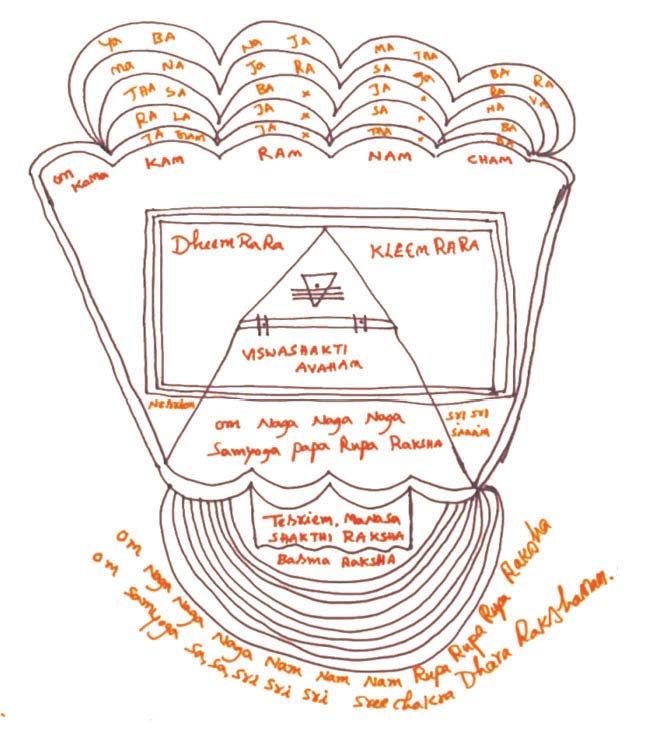 Ya BA NA JA MA THA BA RA
Ma NA Ja RA SA Ja RA VA
THA SA BA × JA × HA
RA LA JA × SA × BA
JA JA × THA × BA
KAM RAM NAM CHAM
Om Kama
Dheem RaRa KLEEM RARA
VISWASHAKTI
AVAHAM
Sri Sri
om Naga Naga Naga
Samyoga papa Rupa RAKSHA
Tebriem, Manasa
SHAKTHI RAKSHA
Basma RAKSHA
Om Naga Naga Naga Nam Nam Nam Rupa Rupa Rupa Raksha
om Samyoga Sa, Sa, Sri Sri Sri Sree Chakra Dhara Rakshamam.